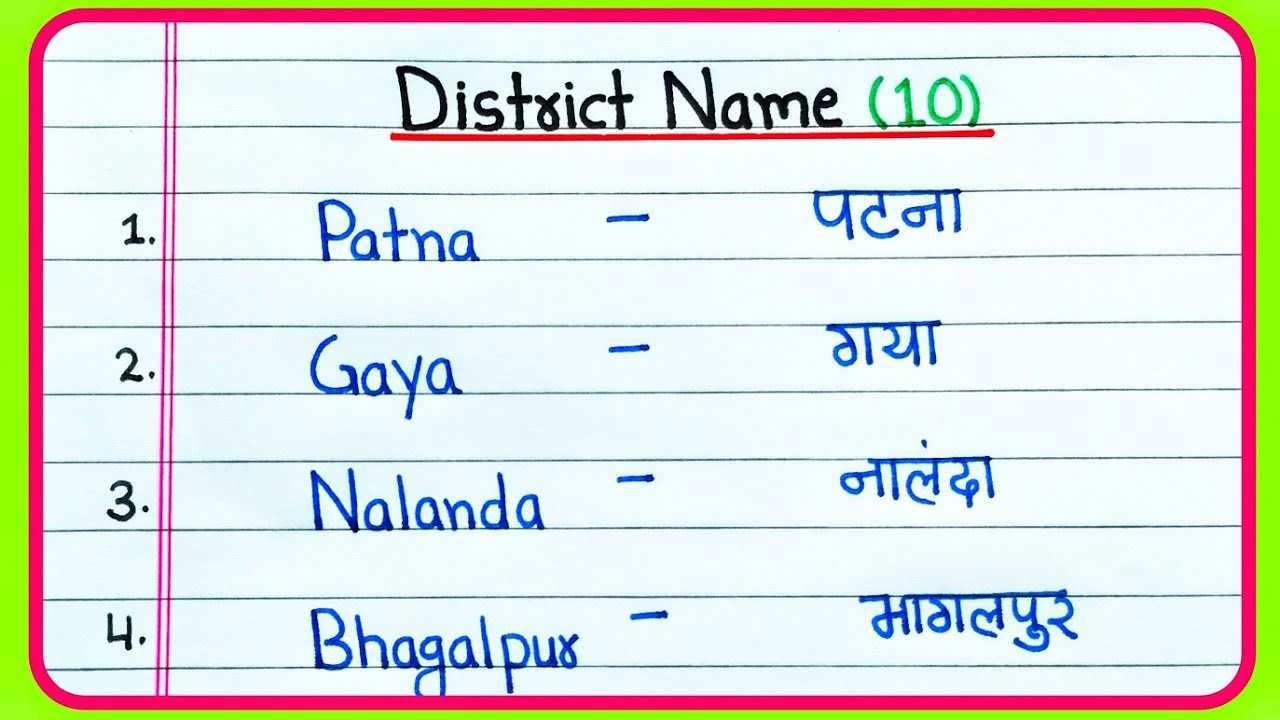 District Name (10)
1. Patna - पटना
2. Gaya - गया
3. Nalanda - नालंदा
4. Bhagalpur - भागलपुर